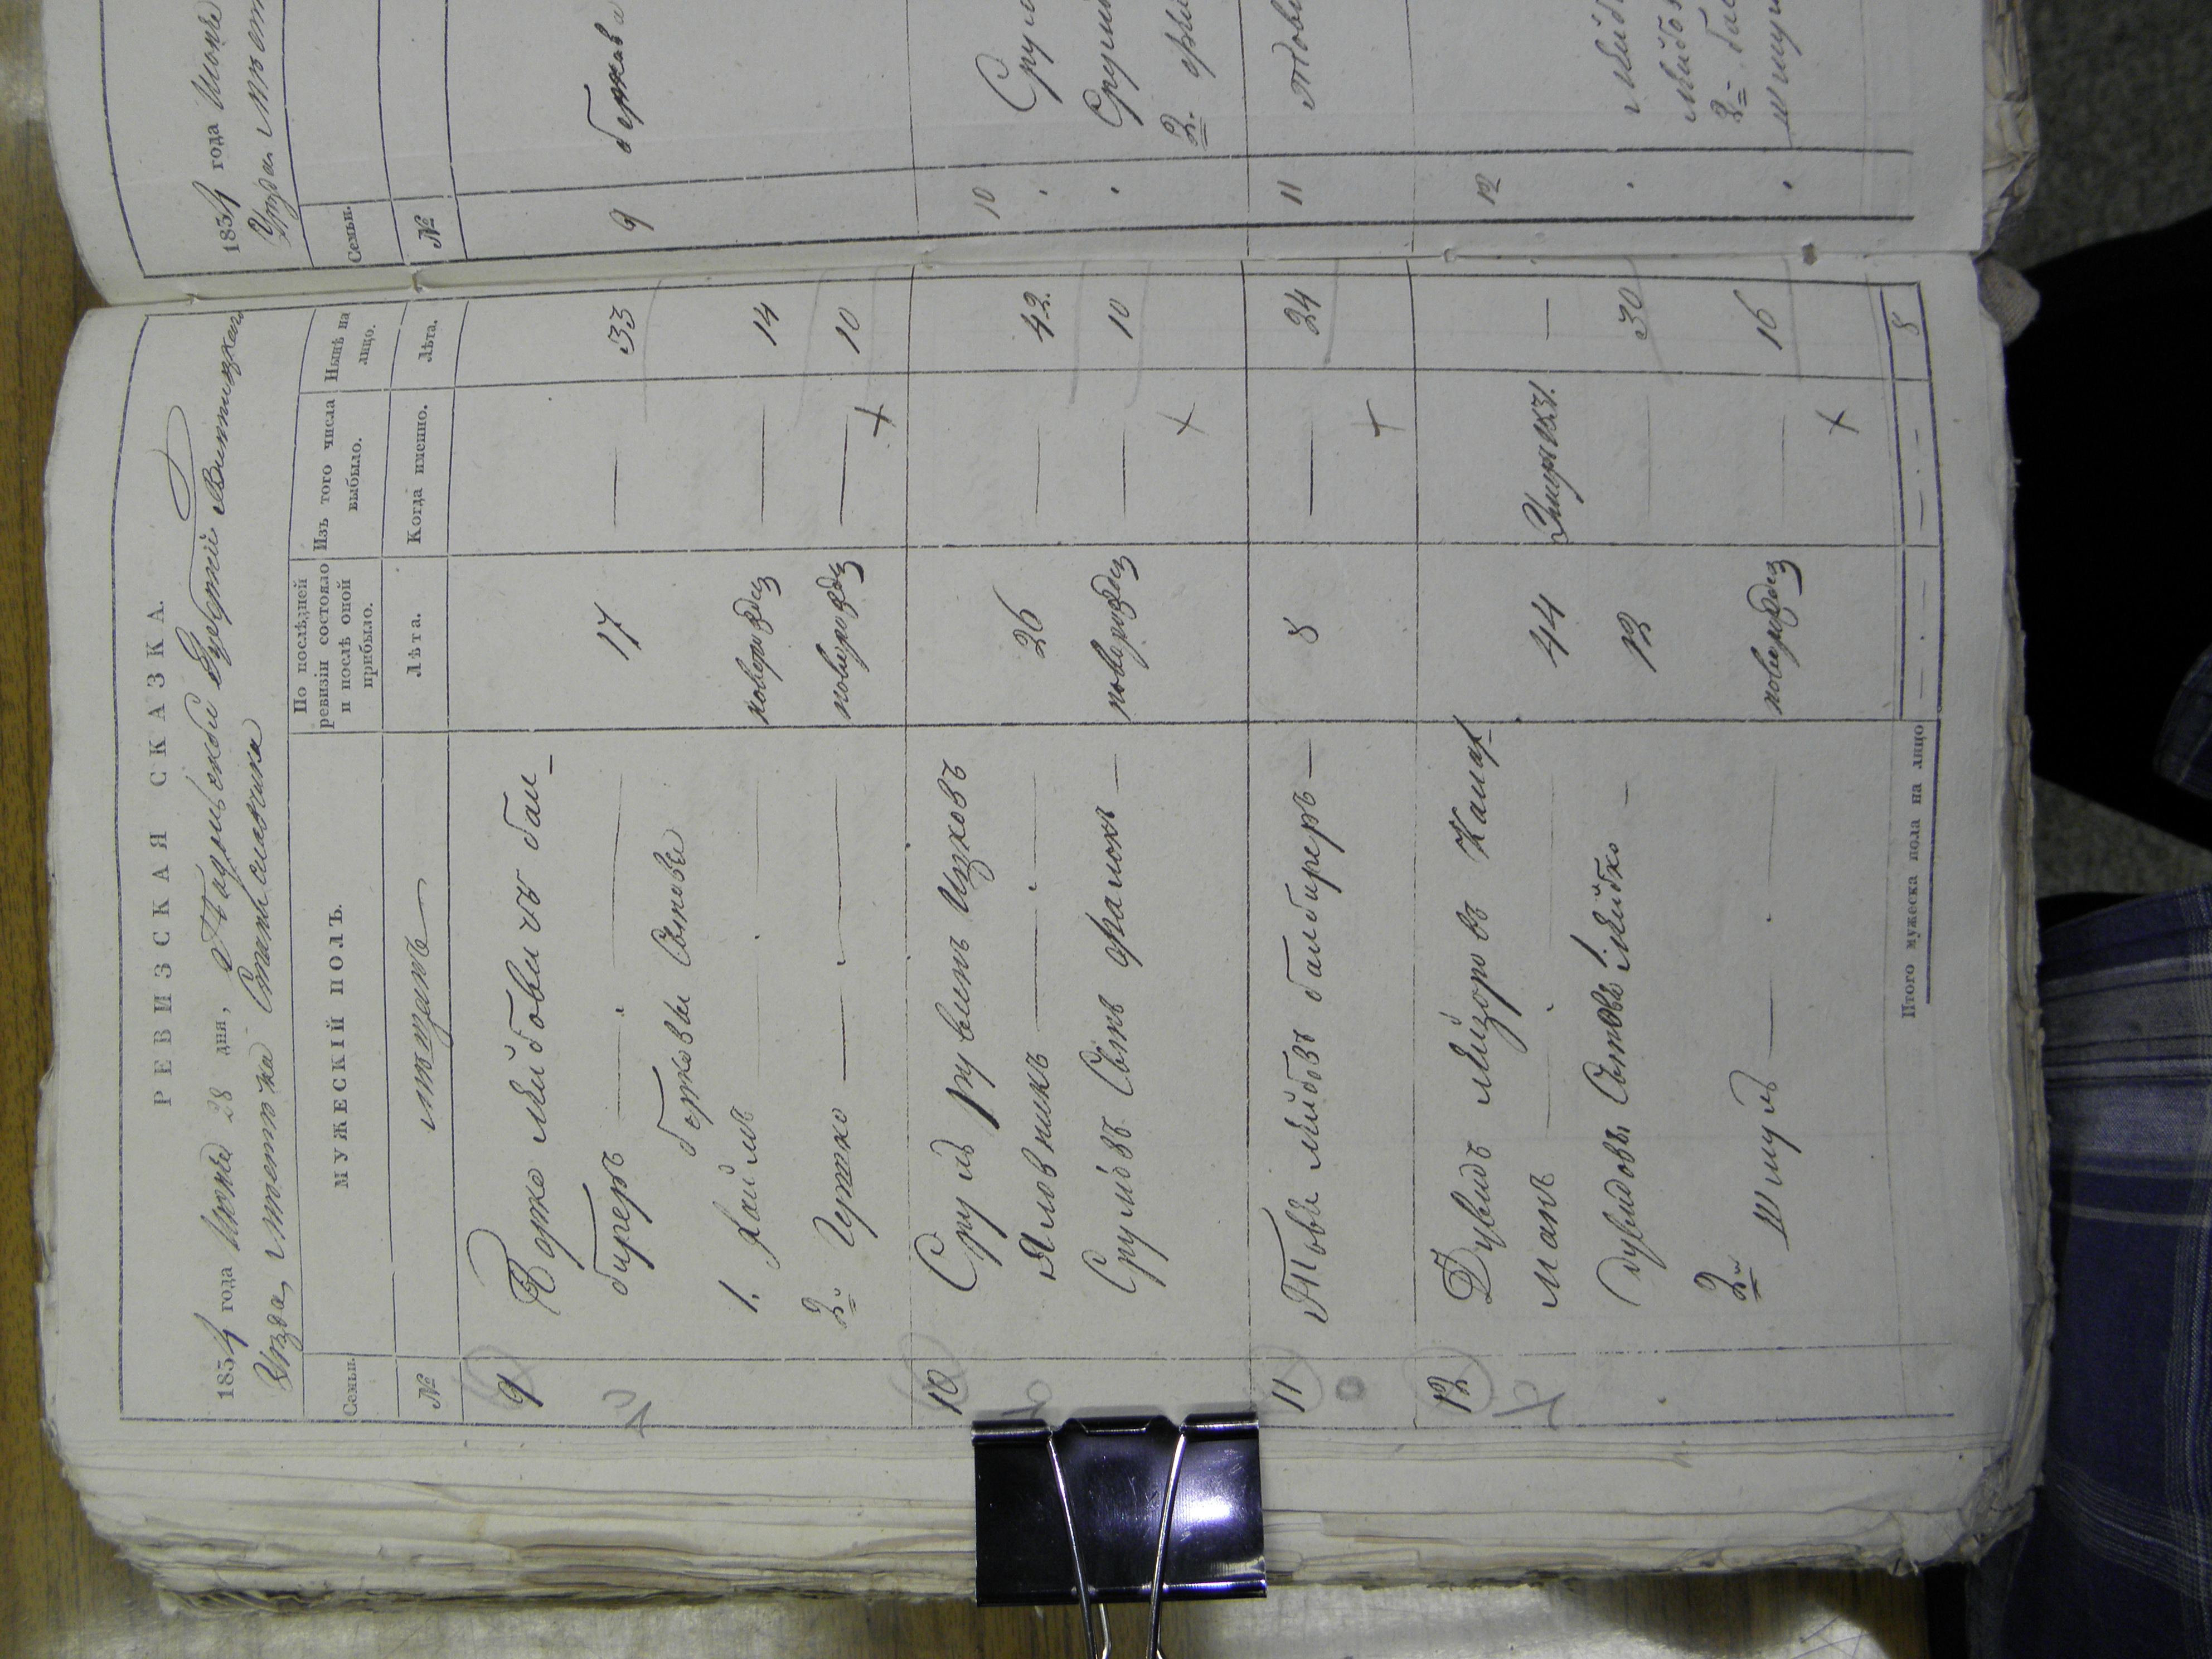 РЕВИЗСКАЯ СКАЗКА.
1834 года Июня 28 дня, Подольской Губерніи Винницкаго
Уезда, местечка Станиславчика
Семьи.
МУЖЕСКІЙ ПОЛЪ.
По послѣдней ревизіи состояло и послѣ оной прибыло.
Изъ того числа выбыло.
Нынѣ на лицо.
№
мѣщанъ
Лѣта.
Когда именно.
Лѣта.
9 Борко Лейбовичъ бал-
биреръ — 17 — 33
берковы Сыновья
1. Хаимъ — новорожден — 14
2й Гершко — новорожден — 10
10 Сруль рувинъ Ицковъ
Яловникъ — 26 — 42.
Срулёвъ Сынъ фроимъ — новорожден — 10
11 Товья Лейбовъ балбиреръ — 8 — 24
12 Дувидъ Лейзоровъ Калиф
манъ — 44 Умеръ 1831. —
Дувидовы Сыновья 1. Лейбко — 12 — 30
2й
Шмуль — новорожден — 16
Итого мужеска пола на лицо — . — — . — 8
1834 года Июня
Уезда, мест
Семьи.
№
9 берков
10
Срул
Сруле
2.
11 товьи
12
Лейб
2
Шмул